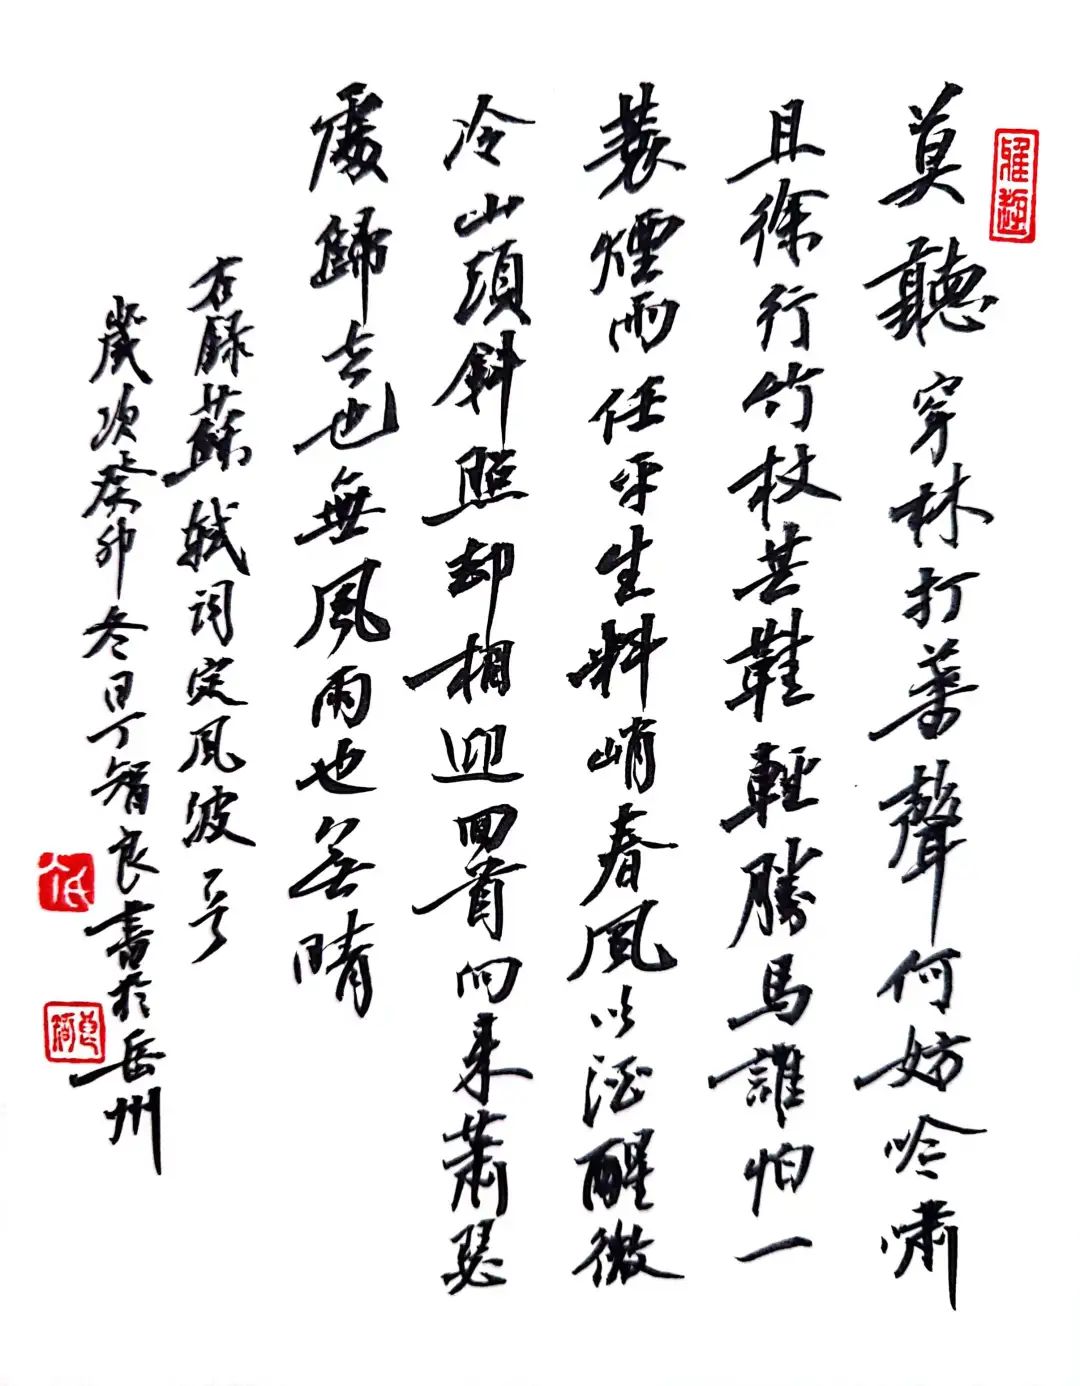 莫聽穿林打葉聲何妨吟嘯
且徐行竹杖芒鞋輕勝馬誰怕一
蓑煙雨任平生料峭春風吹酒醒微
冷山頭斜照却相迎回首向來蕭瑟
處歸去也無風雨也無晴
右錄蘇軾詞定風波
歲次癸卯冬日丁智良書於岳州